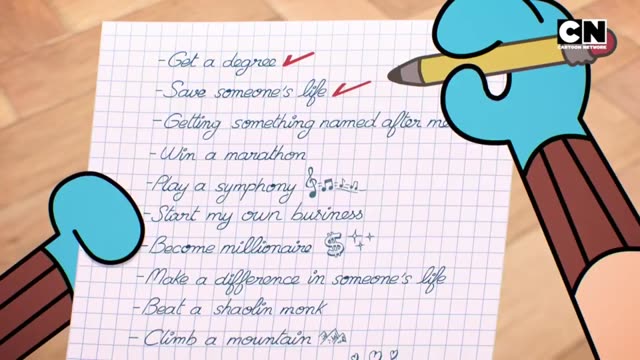 CN
CARTOON NETWORK
- Get a degree
- Save someone's life
- Getting something named after me
- Win a marathon
- Play a symphony
- Start my own business
- Become millionaire $
- Make a difference in someone's life
- Beat a shaolin monk
- Climb a mountain